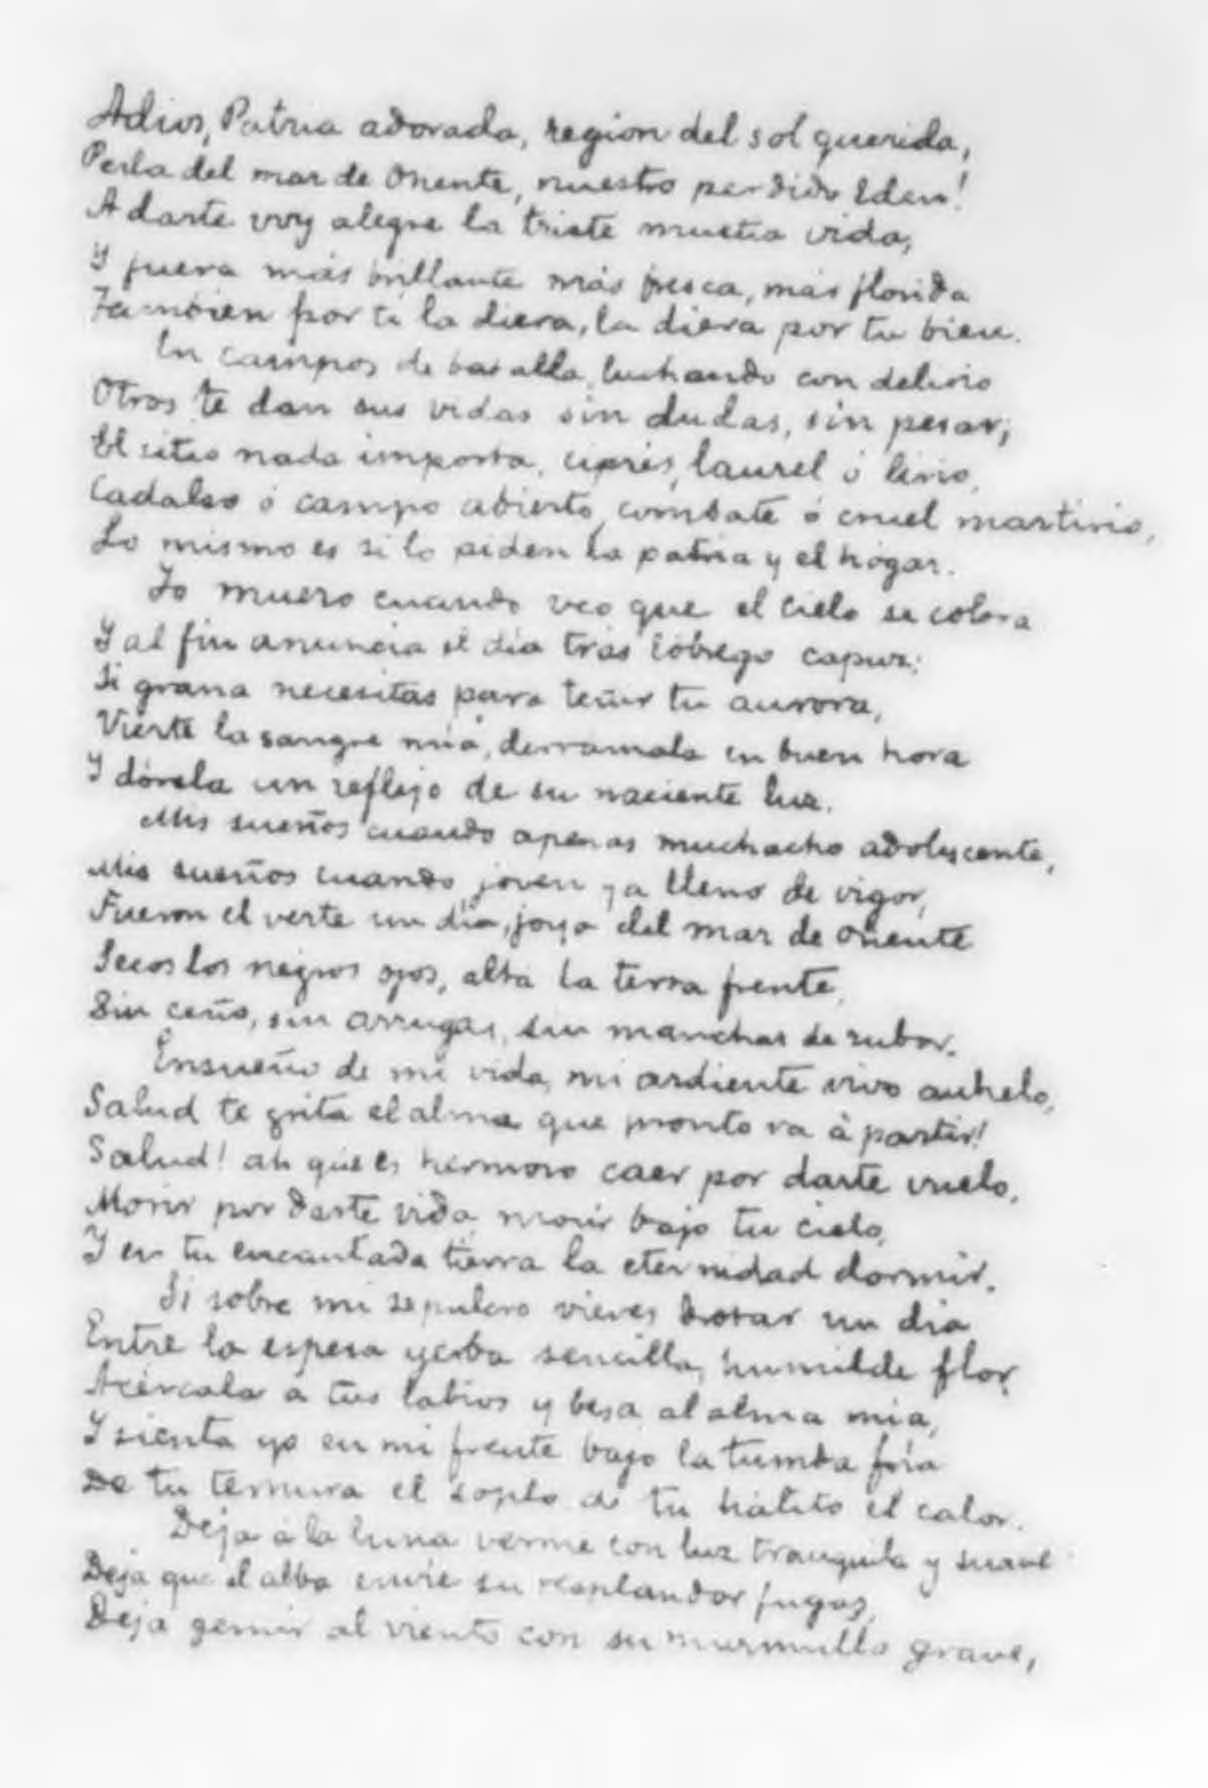 Adios, Patria adorada, region del sol querida,
Perla del mar de Oriente, nuestro perdido Eden!
A darte voy alegre la triste mustia vida,
Y fuera más brillante más fresca, más florida
Tambien por tí la diera, la diera por tu bien.
En campos de batalla, luchando con delirio
Otros te dan sus vidas sin dudas, sin pesar;
El sitio nada importa, ciprés, laurel ó lirio,
Cadalso ó campo abierto, combate ó cruel martirio,
Lo mismo es si lo piden la patria y el hogar.
Yo muero cuando veo que el cielo se colora
Y al fin anuncia el día tras lóbrego capuz;
Si grana necesitas para teñir tu aurora,
Vierte la sangre mía, derrámala en buen hora
Y dórela un reflejo de su naciente luz.
Mis sueños cuando apenas muchacho adolescente,
Mis sueños cuando joven ya lleno de vigor,
Fueron el verte un día, joya del mar de oriente
Secos los negros ojos, alta la tersa frente,
Sin ceño, sin arrugas, sin manchas de rubor.
Ensueño de mi vida, mi ardiente vivo anhelo,
Salud te grita el alma que pronto va á partir!
Salud! ah que es hermoso caer por darte vuelo,
Morir por darte vida, morir bajo tu cielo,
Y en tu encantada tierra la eternidad dormir.
Si sobre mi sepulcro vieres brotar un día
Entre la espesa yerba sencilla, humilde flor,
Acércala a tus labios y besa al alma mía,
Y sienta yo en mi frente bajo la tumba fría
De tu ternura el soplo de tu hálito el calor.
Deja á la luna verme con luz tranquila y suave
Deja que el alba envíe su resplandor fugaz,
Deja gemir al viento con su murmullo grave,